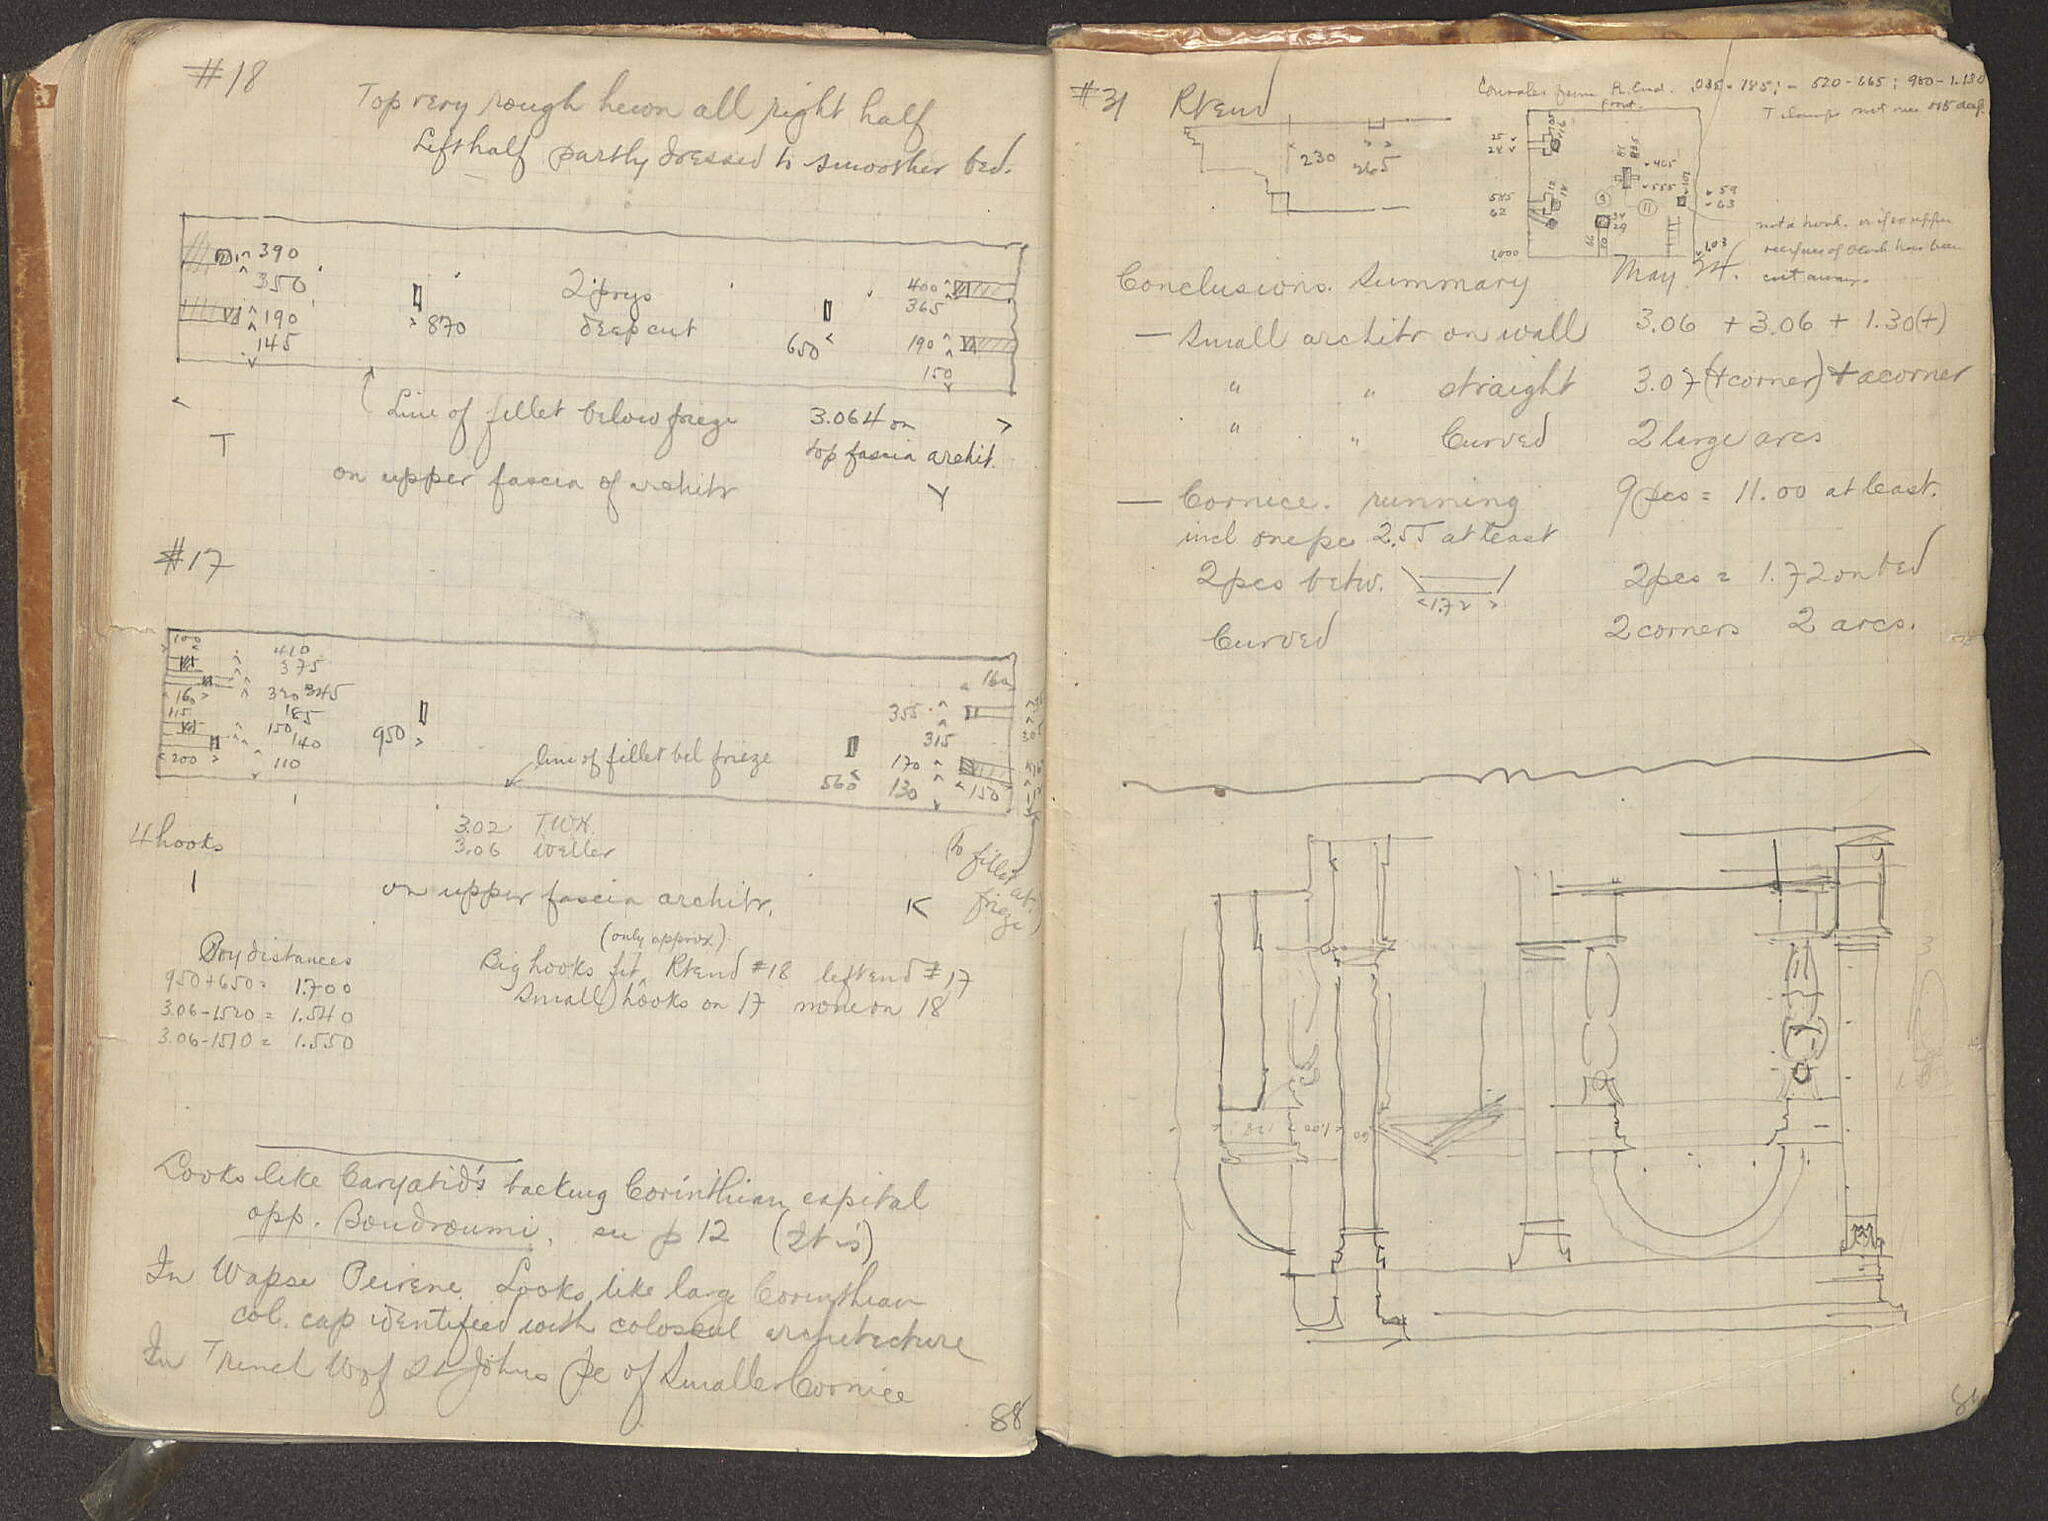 #18
Top very rough hewn all right half
Left half partly dressed to smoother bed.
390
350
190
145
870
2 prys
deep cut
650
400
365
190
150
Line of fillet below frieze
3.064 on
top fascia archit.
T
on upper fascia of architr
Y
#17
100
410
375
160
320 345
115
185
150
140
200
110
950
line of fillet bel frieze
560
160
355
315
170
130
150
4 hooks
3.02 TWH.
3.06 Weller
(to fillet
at
frieze)
I
on upper fascia architr.
K
(only approx.)
Pry distances
950 + 650 = 1.700
3.06 - 1520 = 1.540
3.06 - 1510 = 1.550
Big hooks fit, Rt End #18 left end #17
Small hooks on 17 none on 18
Looks like Caryatid's backing Corinthian capital
opp. Boudroumi, see p 12 (It is)
In W apse Peirene. Looks like large Corinthian
col. cap identified with colossal architecture
In Trench W of St Johns pc of Smaller Cornice
88
#31 Rt End
from R. End. .035-.185; - 520-665; 980-1.130
Front.
T clamps not
230
265
25
585
62
1.000
465
555
59
63
34
29
9
11
1.03
not a hook. or if so upper
surface of block has been
cut away.
Conclusions. Summary May 24.
— Small architr on wall 3.06 + 3.06 + 1.30(+)
" " straight 3.07 (+corner) + a corner
" " Curved 2 large arcs
— Cornice. running 9 pcs = 11.00 at least.
incl one pc 2.55 at least
2 pcs betw. 1.72 2 pcs = 1.72 on bed
Curved 2 corners 2 arcs.